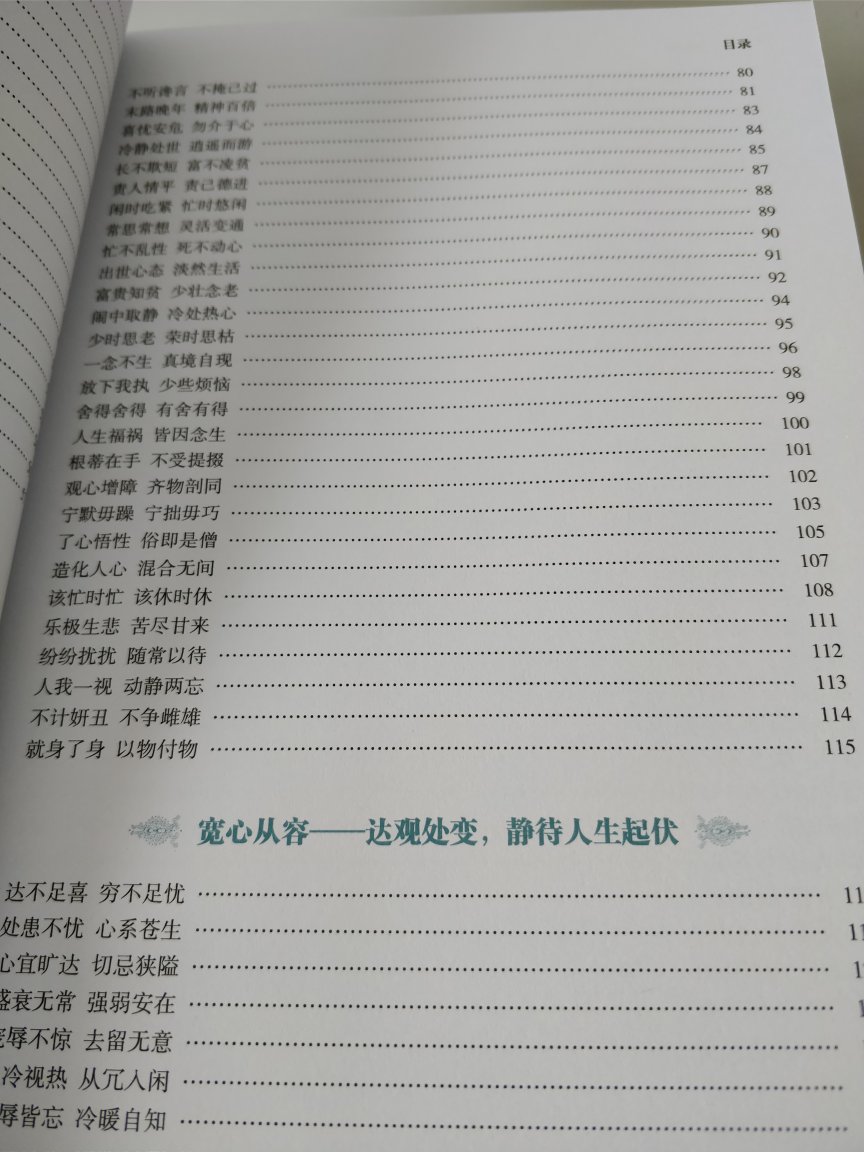 目录
不听谗言 不掩己过 80
末路晚年 精神百倍 81
喜忧安危 勿介于心 83
冷静处世 逍遥而游 84
长不欺短 富不凌贫 85
责人情平 责己德进 87
闲时吃紧 忙时悠闲 88
常思常想 灵活变通 89
忙不乱性 死不动心 90
出世心态 淡然生活 91
富贵知贫 少壮念老 92
闹中取静 冷处热心 94
少时思老 荣时思枯 95
一念不生 真境自现 96
放下我执 少些烦恼 98
舍得舍得 有舍有得 99
人生福祸 皆因念生 100
根蒂在手 不受提掇 101
观心增障 齐物剖同 102
宁默毋躁 宁拙毋巧 103
了心悟性 俗即是僧 105
造化人心 混合无间 107
该忙时忙 该休时休 108
乐极生悲 苦尽甘来 111
纷纷扰扰 随常以待 112
人我一视 动静两忘 113
不计妍丑 不争雌雄 114
就身了身 以物付物 115
宽心从容——达观处变，静待人生起伏
达不足喜 穷不足忧 11
处患不忧 心系苍生 11
心宜旷达 切忌狭隘 1
盛衰无常 强弱安在 1
辱不惊 去留无意
冷视热 从冗入闲
辱皆忘 冷暖自知